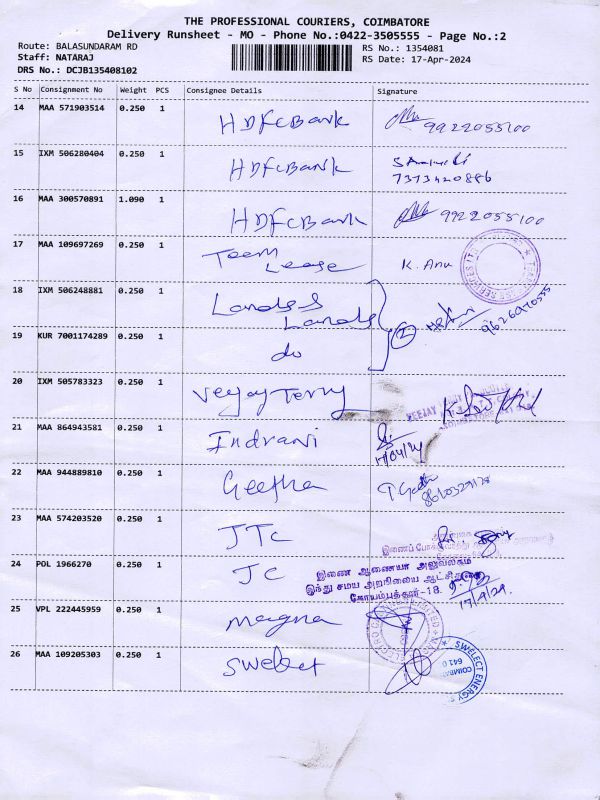 THE PROFESSIONAL COURIERS, COIMBATORE
Delivery Runsheet - MO - Phone No.:0422-3505555 - Page No.:2
Route: BALASUNDARAM RD
RS No.: 1354081
Staff: NATARAJ
RS Date: 17-Apr-2024
DRS No.: DCJB135408102
S No Consignment No Weight PCS Consignee Details Signature
14 MAA 571903514 0.250 1 HDFC Bank 9922055100
15 IXM 506280404 0.250 1 HDFC Bank
7373420886
16 MAA 300570891 1.090 1 HDFC Bank 9922055100
17 MAA 109697269 0.250 1 Team Lease K. Anu
18 IXM 506248881 0.250 1 Lands & Lands 2 9626970555
19 KUR 7001174289 0.250 1 do
20 IXM 505783323 0.250 1 Veejay Terry
VEEJAY
21 MAA 864943581 0.250 1 Indrani
17/04/24
22 MAA 944889810 0.250 1 Geetha
23 MAA 574203520 0.250 1 JTC
24 POL 1966270 0.250 1 JC
இணை ஆணையர் அலுவலகம்
இந்து சமய அறநிலைய ஆட்சித்துறை
கோயம்புத்தூர்-18.
17/4/24
25 VPL 222445959 0.250 1 magna
26 MAA 109205303 0.250 1 Swelect
SWELECT ENERGY